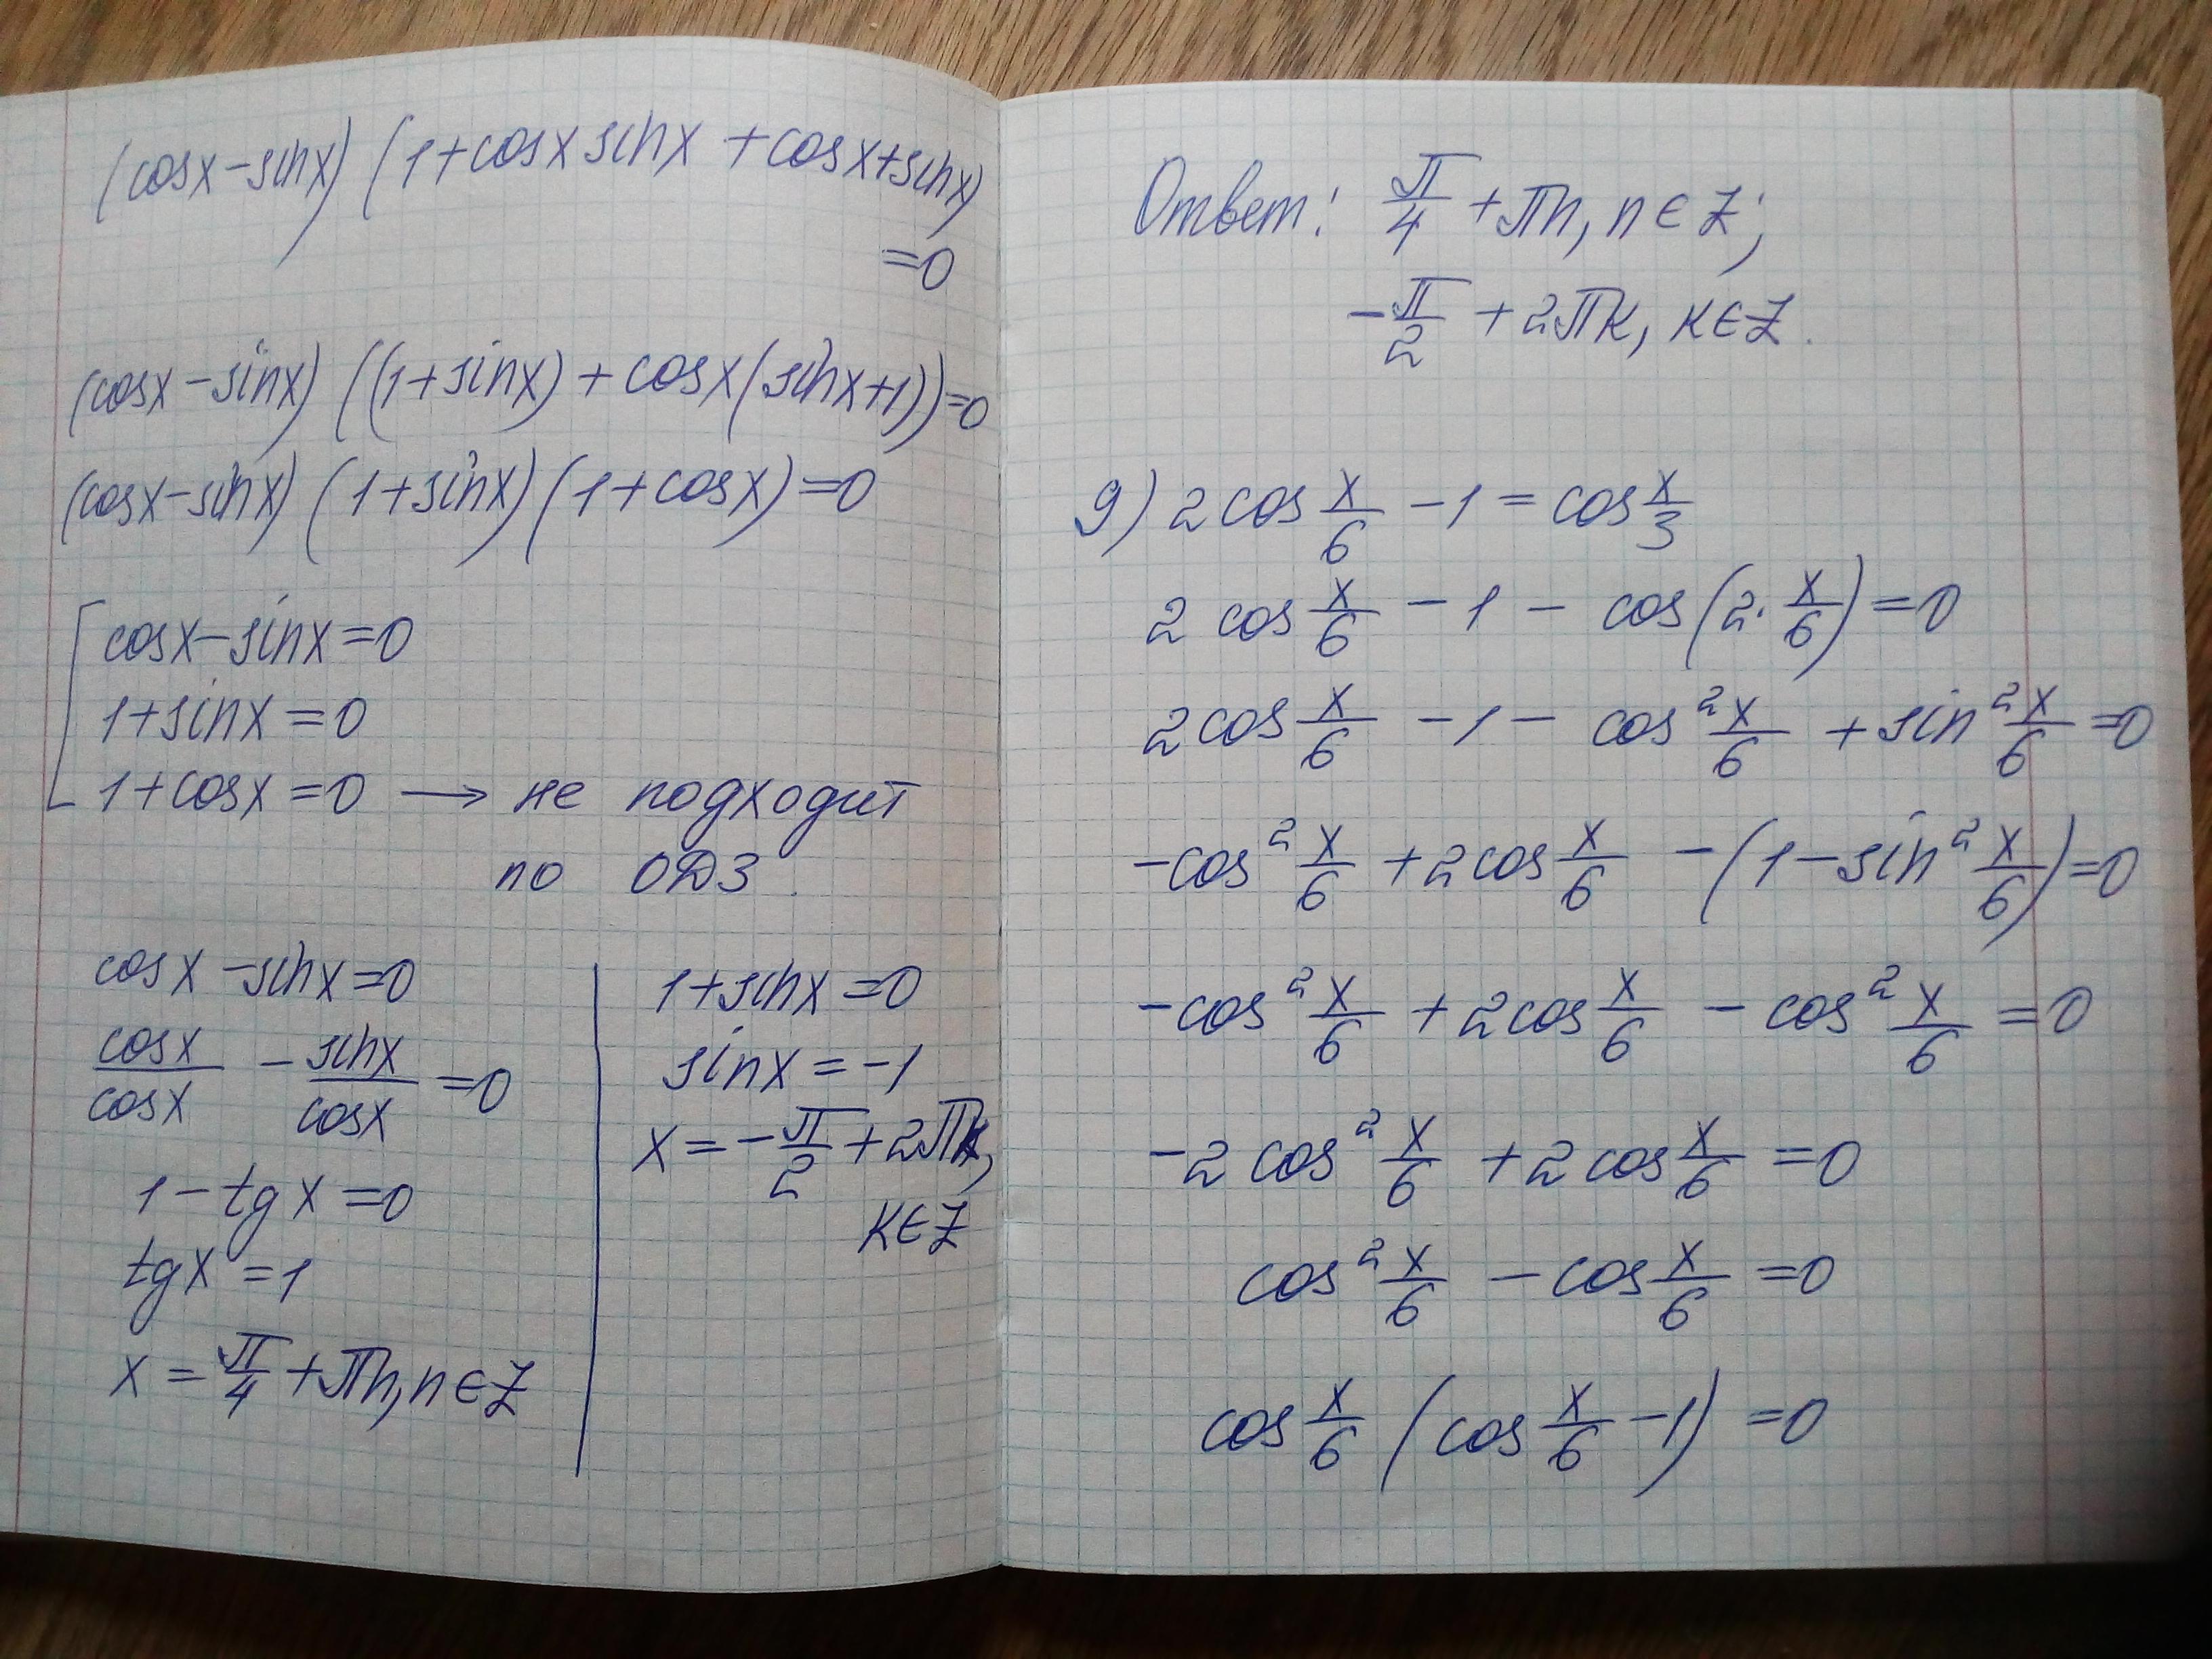 (cosx-sinx) (1+cosx sinx +cosx+sinx)
=0
(cosx-sinx) ((1+sinx)+cosx(sinx+1))=0
(cosx-sinx) (1+sinx) (1+cosx)=0
cosx-sinx=0
1+sinx=0
1+cosx=0 → не подходит
по ОДЗ.
cosx-sinx=0
cosx/cosx - sinx/cosx =0
1-tgx=0
tgx=1
x=π/4+πn, n∈Z
1+sinx=0
sinx=-1
x=-π/2+2πk,
k∈Z
Ответ: π/4+πn, n∈Z;
-π/2+2πk, k∈Z.
9) 2cos x/6 -1 = cos x/3
2 cos x/6 -1 - cos(2·x/6)=0
2cos x/6 -1- cos² x/6 + sin² x/6 =0
-cos² x/6 +2cos x/6 -(1-sin² x/6)=0
-cos² x/6 +2cos x/6 - cos² x/6 =0
-2 cos² x/6 +2 cos x/6 =0
cos² x/6 - cos x/6 =0
cos x/6 (cos x/6 -1) =0